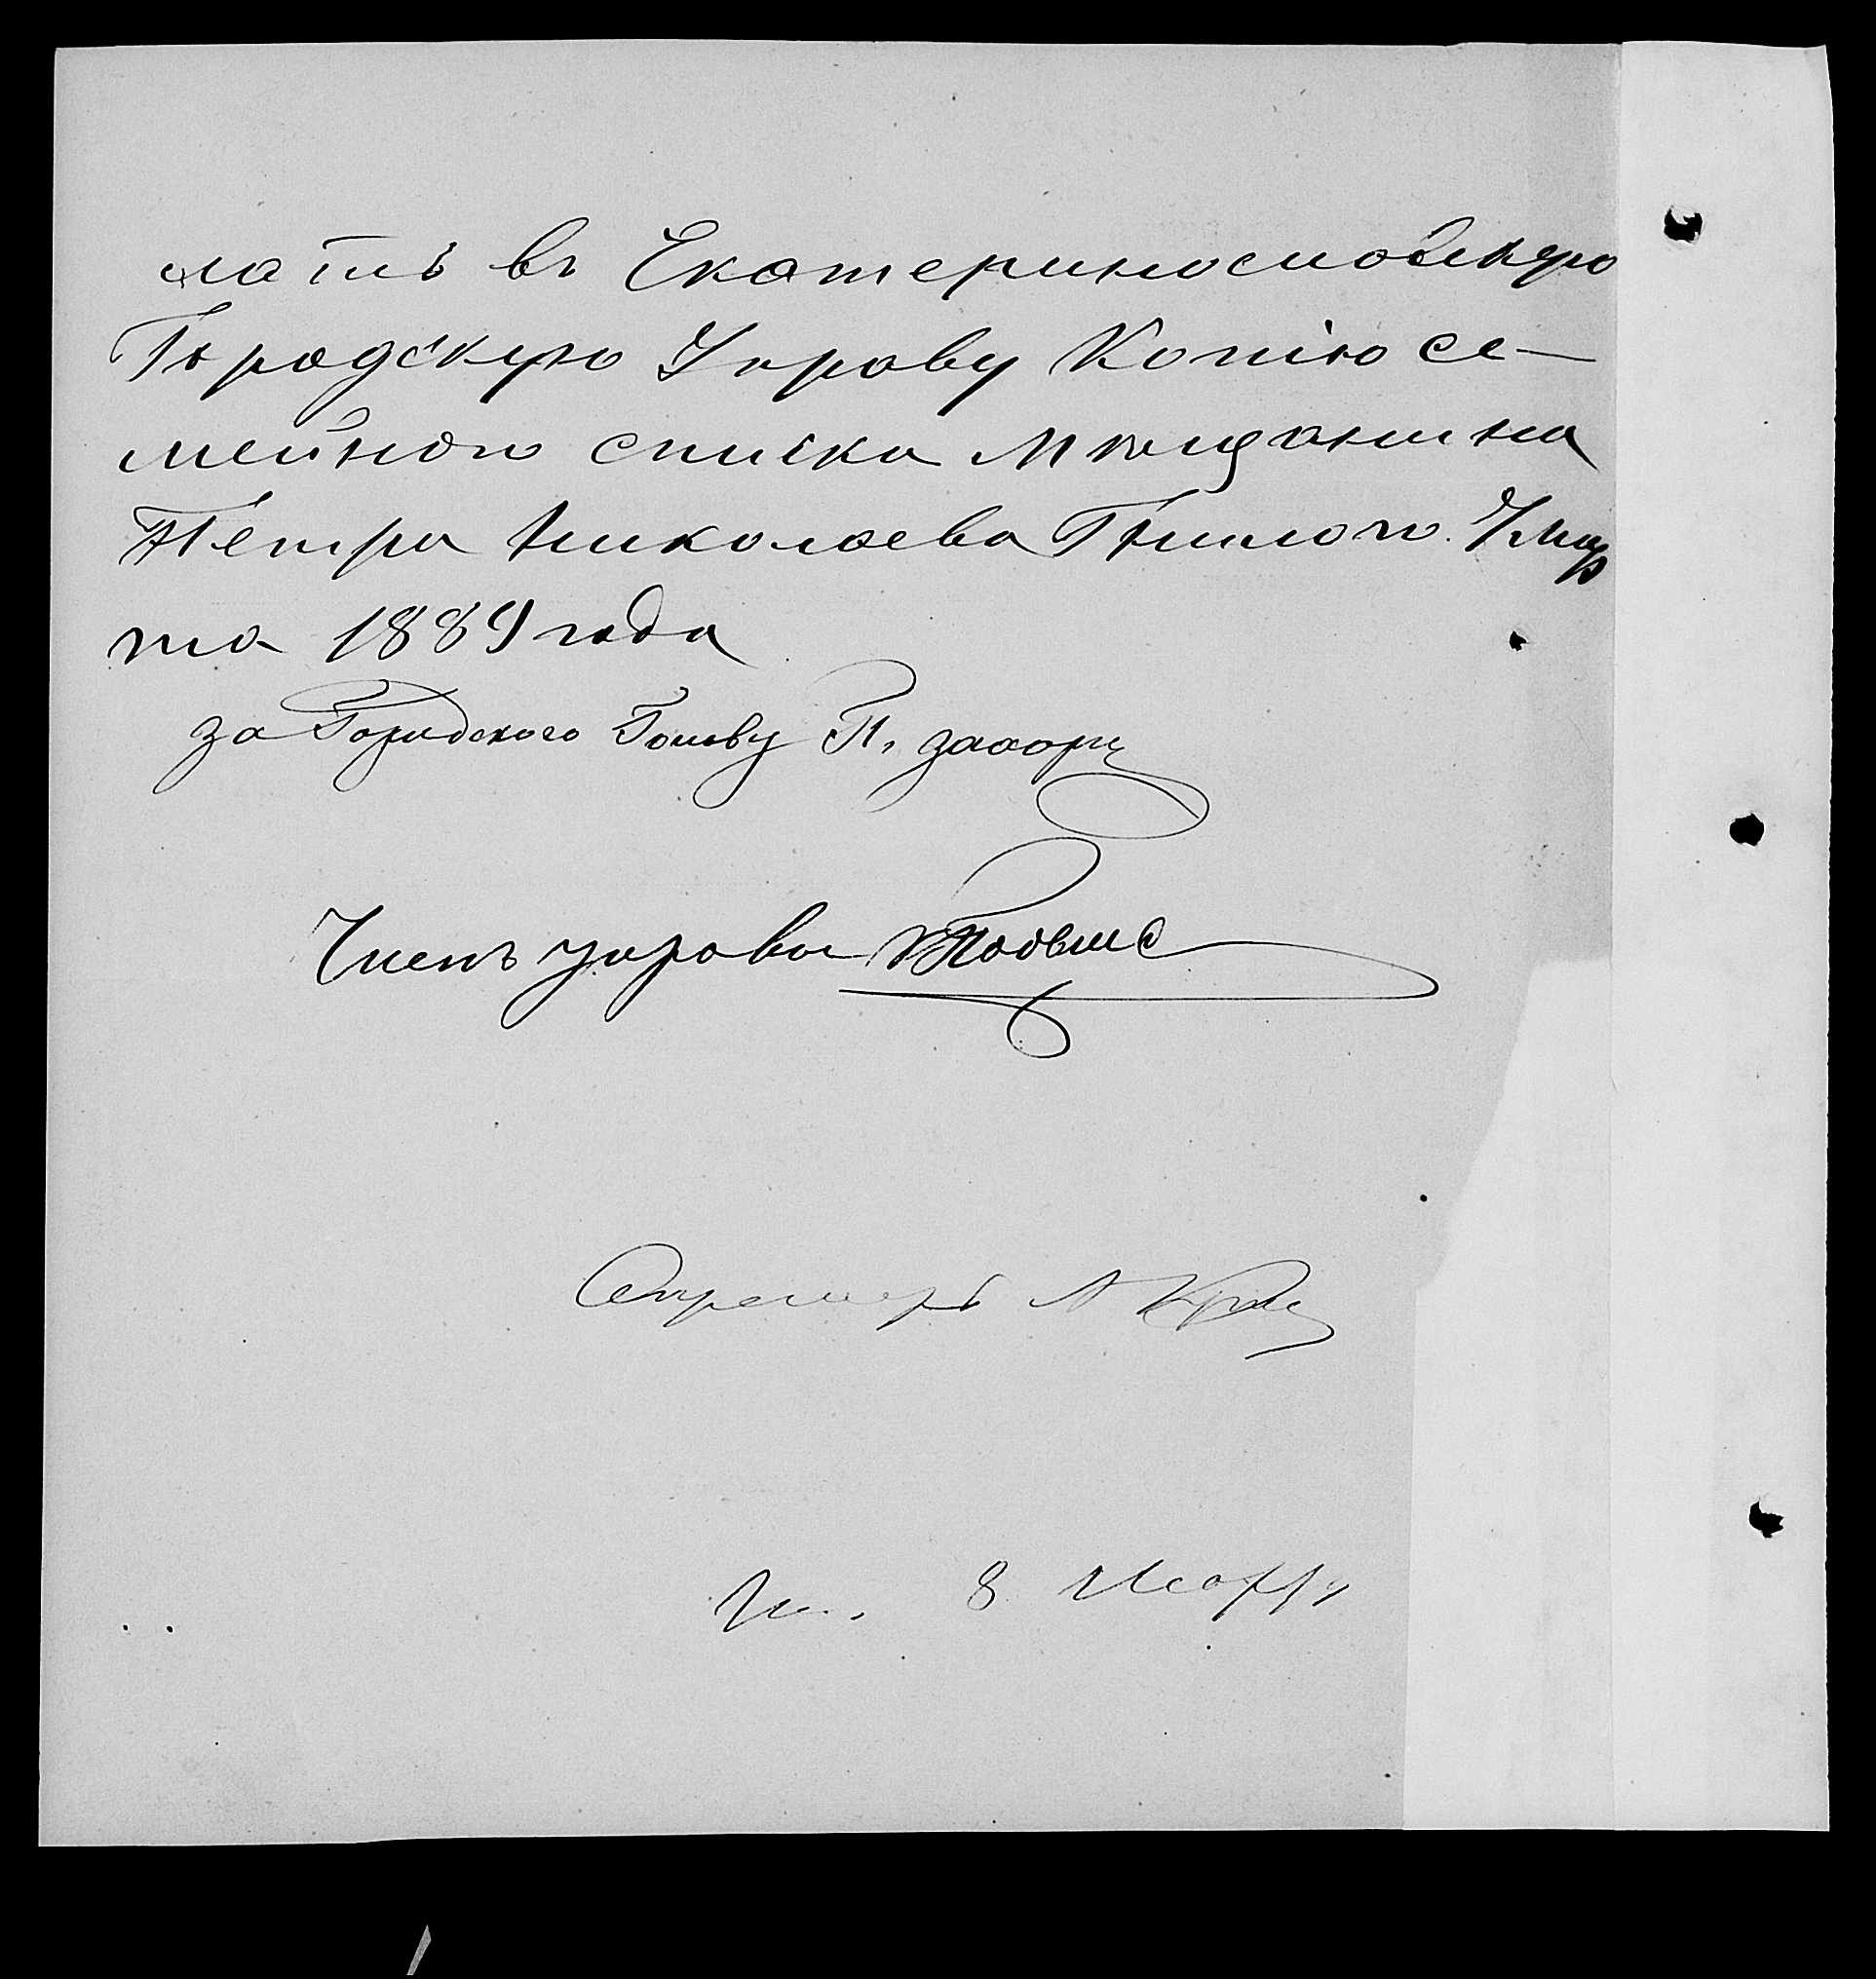 лать въ Екатеринославскую
Городскую Управу Копію се-
мейнаго списка Мѣщанина
Петра Николаева Гнилого. 7 мар
та 1889 года
за Городского Голову П.
Членъ управы
Секретарь А
8 Марта